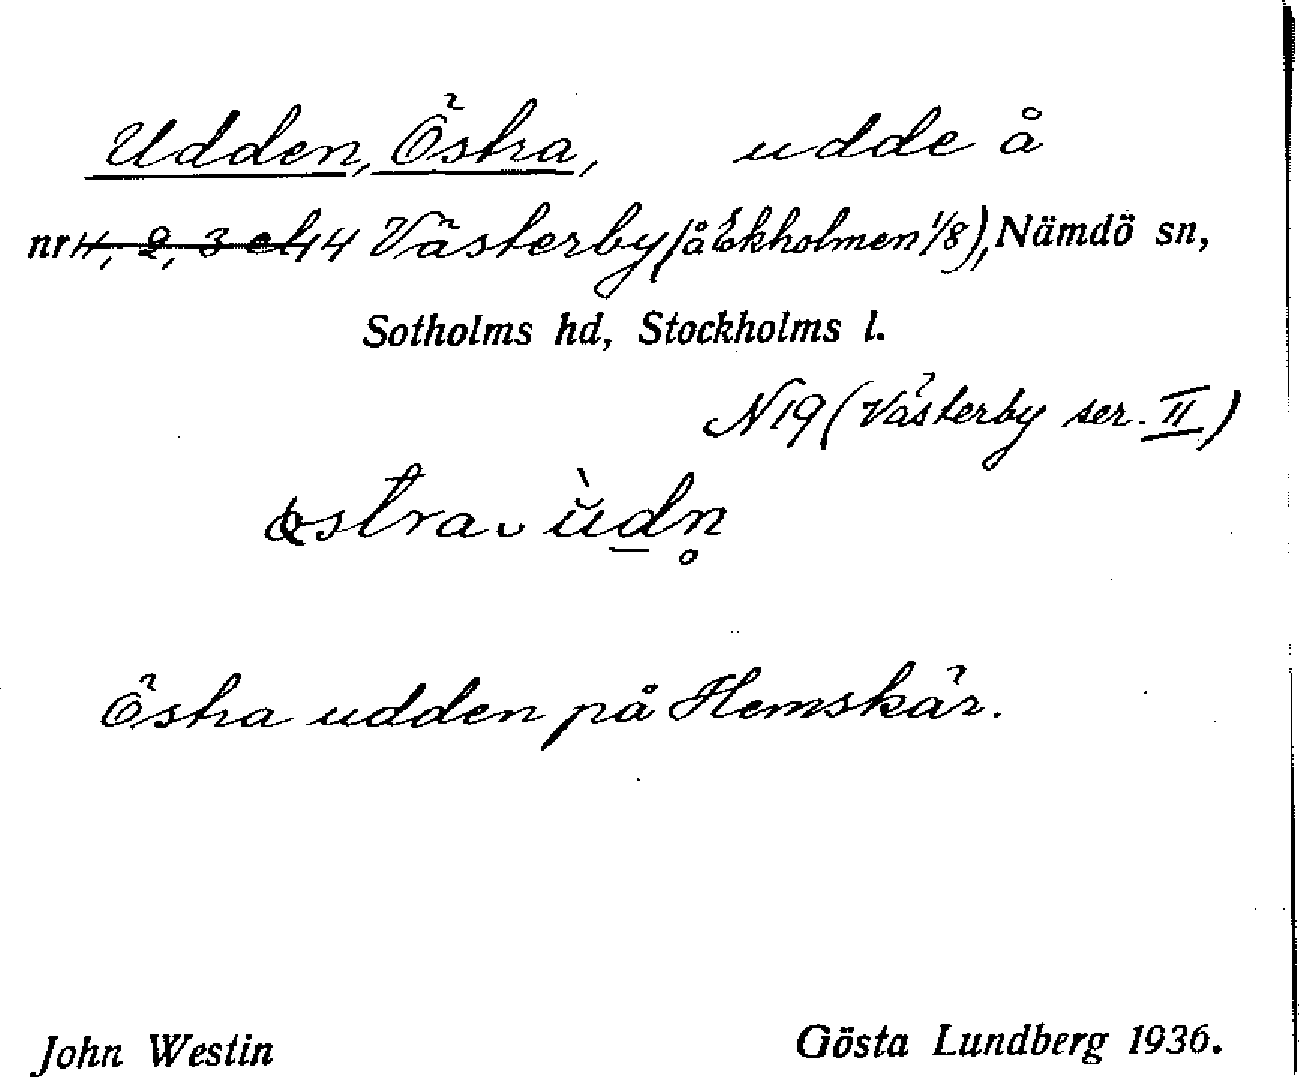 Udden, Östra, udde å
nr 1, 2, 3 el. 4 Västerby (å Ekholmen 1/8), Nämdö sn,
Sotholms hd, Stockholms l.
N 19 (Västerby ser. II)
östra ùdn̥
Östra udden på Hemskär.
John Westin Gösta Lundberg 1936.